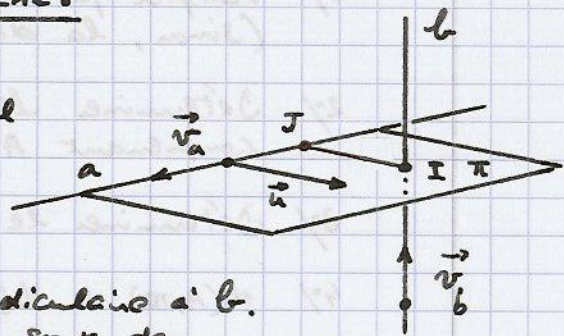 b
l
v⃗a
J
a
I π
u⃗
v⃗b
diculaire à b.